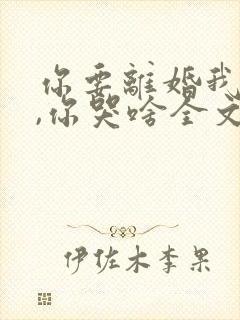 你要離婚我
,你哭啥全文
伊佐木李果